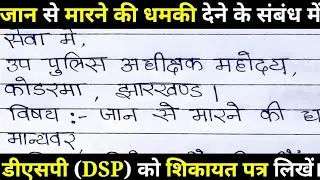 जान से मारने की धमकी देने के संबंध में
सेवा में,
उप पुलिस अधीक्षक महोदय,
कोडरमा, झारखण्ड।
विषय :- जान से मारने की ध
मान्यवर,
डीएसपी (DSP) को शिकायत पत्र लिखें।